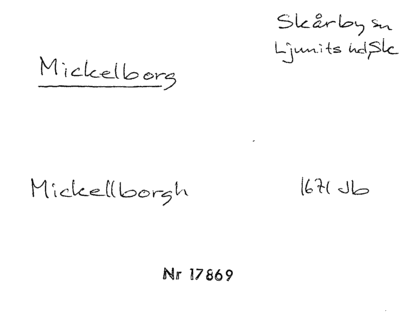 Mickelborg
Skårby sn
Ljunits hd, Sk
Mickellborgh
1671 Jb
Nr 17869